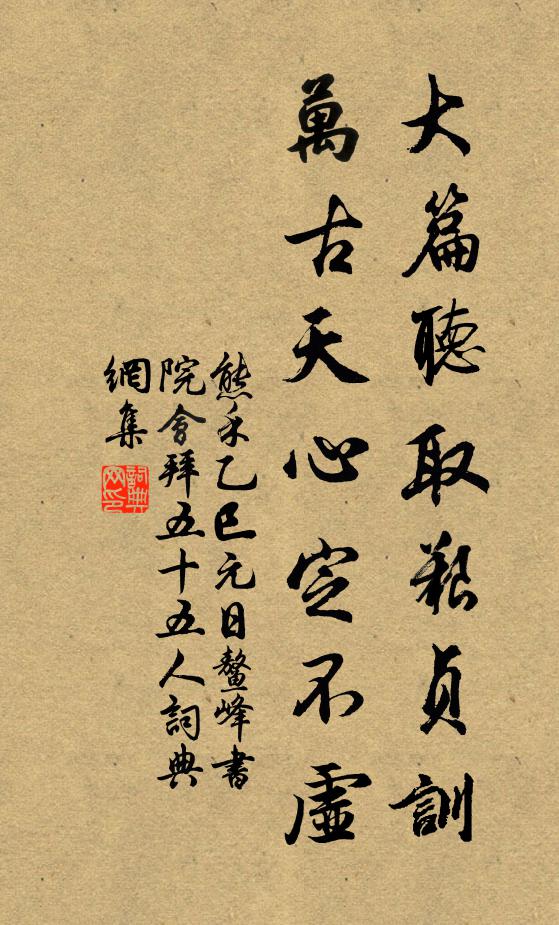 大篇聽取艱貞訓
萬古天心定不虛
熊禾乙巳元日鰲峰書
院會拜五十五人詞典
網集
詞典
网印